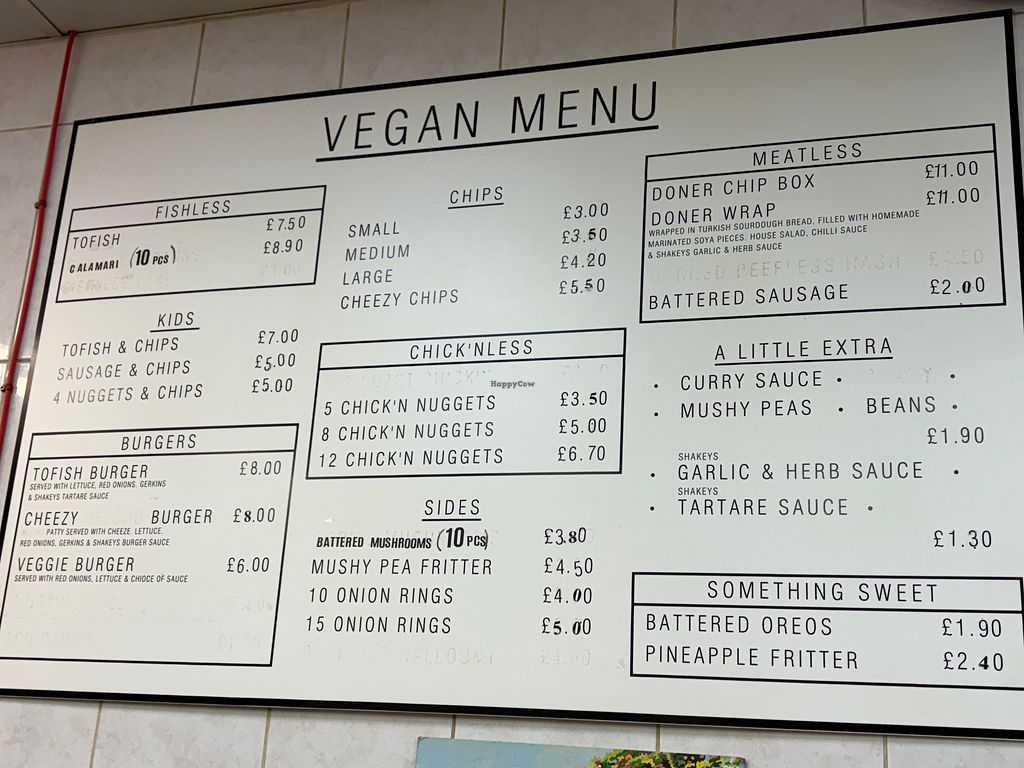 VEGAN MENU
FISHLESS
TOFISH £7.50
CALAMARI (10 PCS) £8.90
KIDS
TOFISH & CHIPS £7.00
SAUSAGE & CHIPS £5.00
4 NUGGETS & CHIPS £5.00
BURGERS
TOFISH BURGER £8.00
SERVED WITH LETTUCE, RED ONIONS, GERKINS
& SHAKEYS TARTARE SAUCE
CHEEZY BURGER £8.00
PATTY SERVED WITH CHEEZE, LETTUCE,
RED ONIONS, GERKINS & SHAKEYS BURGER SAUCE
VEGGIE BURGER £6.00
SERVED WITH RED ONIONS, LETTUCE & CHIOCE OF SAUCE
CHIPS
SMALL £3.00
MEDIUM £3.50
LARGE £4.20
CHEEZY CHIPS £5.50
CHICK'NLESS
HappyCow
5 CHICK'N NUGGETS £3.50
8 CHICK'N NUGGETS £5.00
12 CHICK'N NUGGETS £6.70
SIDES
BATTERED MUSHROOMS (10 PCS) £3.80
MUSHY PEA FRITTER £4.50
10 ONION RINGS £4.00
15 ONION RINGS £5.00
MEATLESS
DONER CHIP BOX £11.00
DONER WRAP £11.00
WRAPPED IN TURKISH SOURDOUGH BREAD, FILLED WITH HOMEMADE
MARINATED SOYA PIECES, HOUSE SALAD, CHILLI SAUCE
& SHAKEYS GARLIC & HERB SAUCE
BATTERED SAUSAGE £2.00
A LITTLE EXTRA
• CURRY SAUCE •
• MUSHY PEAS • BEANS •
£1.90
SHAKEYS
• GARLIC & HERB SAUCE •
SHAKEYS
• TARTARE SAUCE •
£1.30
SOMETHING SWEET
BATTERED OREOS £1.90
PINEAPPLE FRITTER £2.40